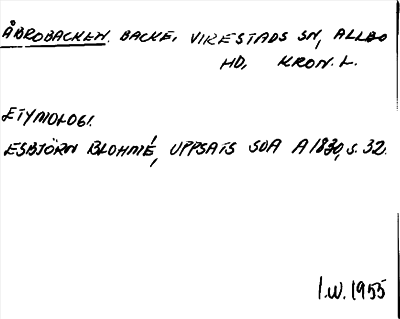 ÅBROBACKEN. BACKE, VIRESTADS SN, ALLBO
HD, KRON. L.
ETYMOLOGI.
ESBJÖRN BLOHMÉ, UPPSATS SOA A1830, S. 32.
I.W. 1955